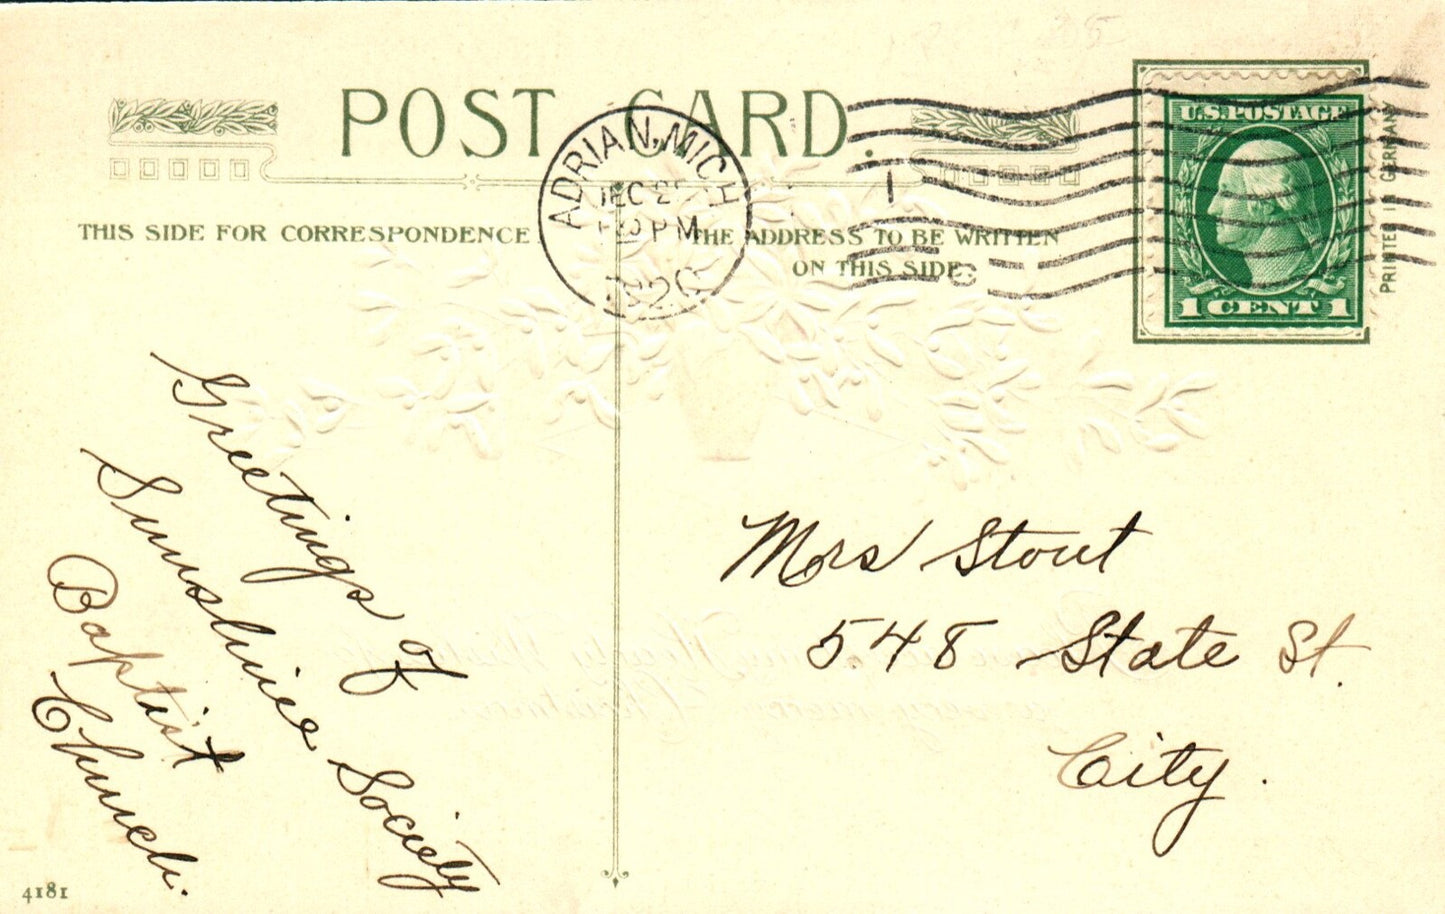 POST CARD.
THIS SIDE FOR CORRESPONDENCE
THE ADDRESS TO BE WRITTEN
ON THIS SIDE
ADRIAN, MICH
DEC 2
PM
1920
1
U.S. POSTAGE
1 CENT 1
PRINTED IN GERMANY
Greetings of
Sunshine Society
Baptist
Church.
Mrs Stout
548 State St.
City.
4181